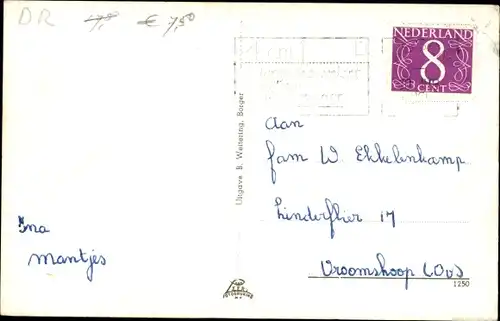 DR 7,8 € 7,50
NEDERLAND
8
CENT
Uitgave B. Weitering, Borger
Aan
fam W. Ekkelenkamp
Linderflier 17
Vroomshoop (Ov)
Ina
Mantjes
1250